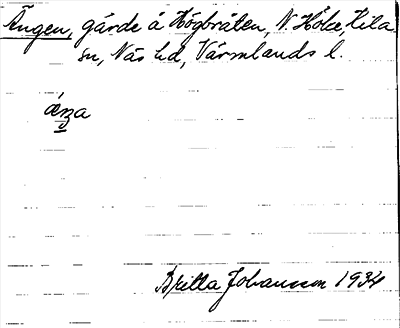 Ängen, gärde å Högbråten, N. Höke, Kila
sn, Näs hd, Värmlands l.
äŋa
Britta Johansson 1934